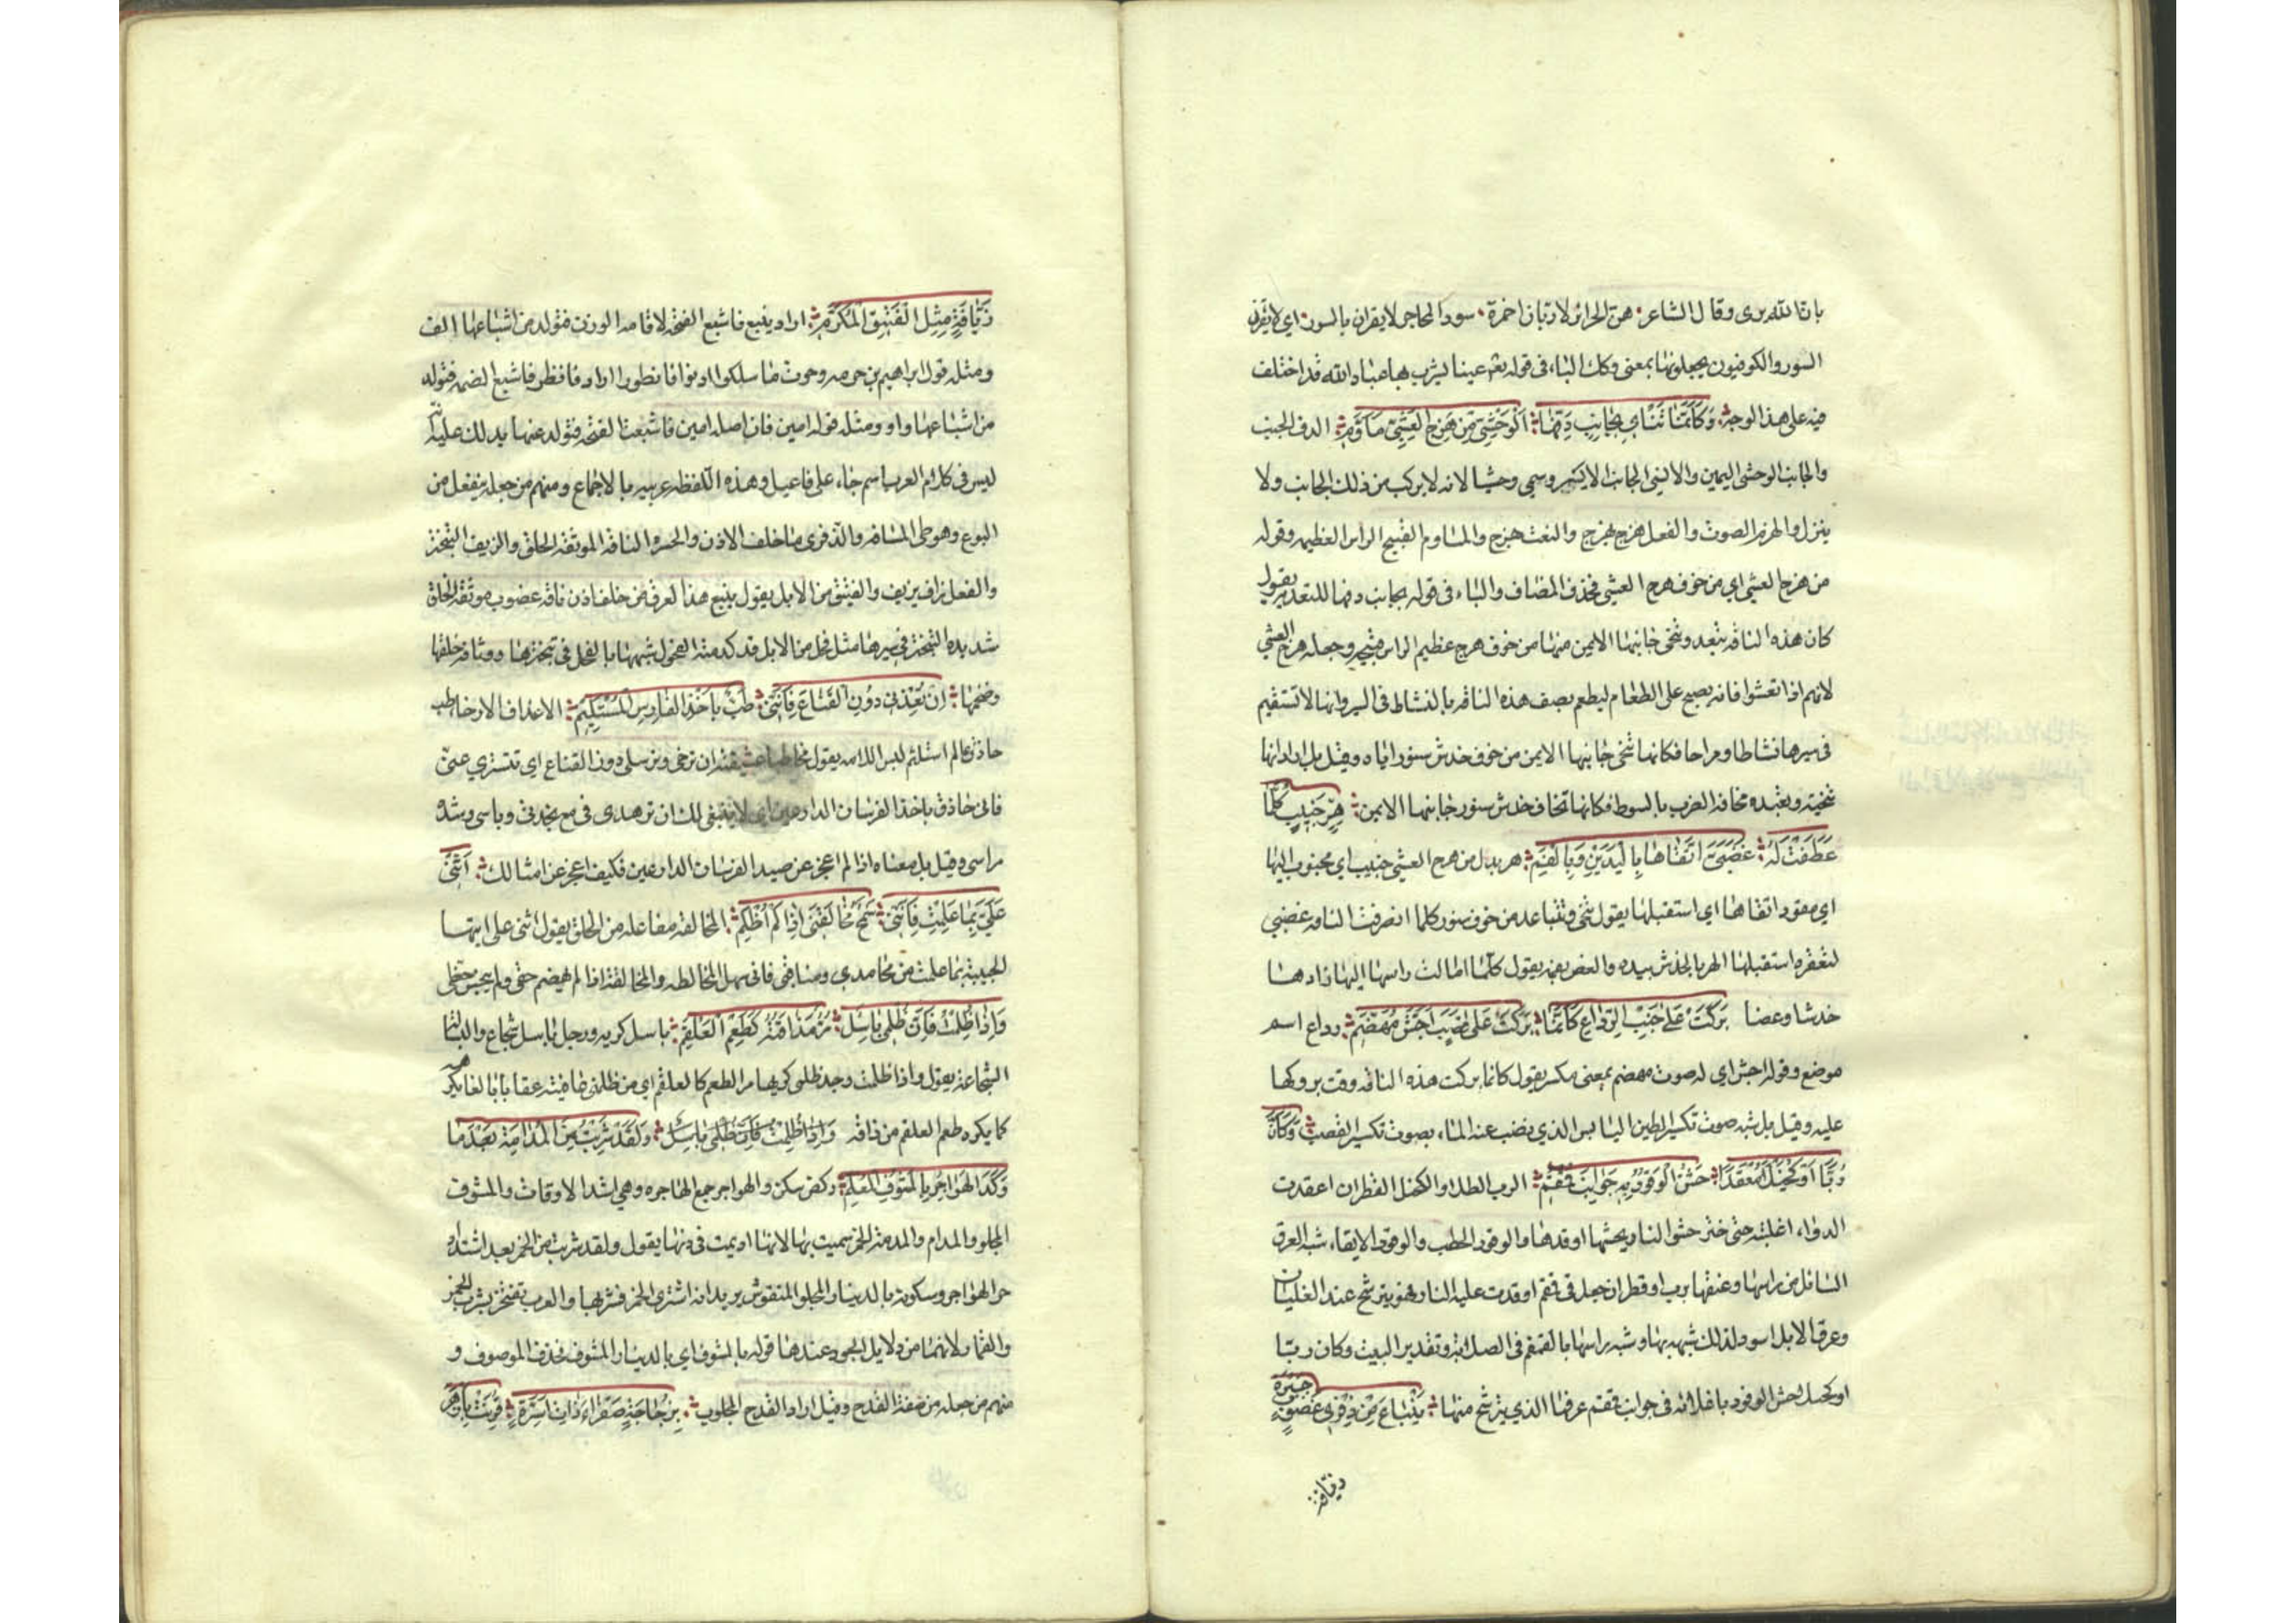 بان الله يرى وقال الشاعر هن الحرائر لا ربات اخمرة سود المحاجر لا يقران بالسور اي لا يقرن
السور والكوفيون يجعلونها بمعنى وكذلك الباء في قوله عينا يشرب بها عباد الله قد اختلف
فيه على هذا الوجه وَكَأَنَّمَا تَنْأى بِجَانِبِ دَفِّهَا الْوَحْشِيِّ مِنْ هَزِجِ الْعَشِيِّ مَأَوَّمِ الدف الجنب
والجانب الوحشي اليمين والانسي الجانب الايسر وسمي وحشيا لانه لا يركب من ذلك الجانب ولا
ينزل والهزج الصوت والفعل هزج يهزج والنعت هزج والماوم القبيح الراس العظيمه وقوله
من هزج العشي اي من خوف هزج العشي فحذف المضاف والباء في قوله بجانب دفها للتعدية يقول
كان هذه الناقة تبعد وتنحى جانبها الايمن منها من خوف هزج عظيم الراس قبيحه وجعله هزج العشي
لانهم اذا تعشوا فانه يصيح على الطعام ليطعم يصف هذه الناقة بالنشاط في السير وانها لا تستقيم
في سيرها نشاطا ومراحا فكانها تنحى جانبها الايمن من خوف خدش سنور اياه وقيل بل اراد انها
تنحيه وتبعده مخافة الضرب بالسوط فكانها تخاف خدش سنور جانبها الايمن هِرٍّ جَنِيبٍ كُلَّمَا
عَطَفَتْ لَهُ غَضْبَى اتَّقَاهَا بِالْيَدَيْنِ وَبِالْفَمِ هر بدل من هزج العشي جنيب اي مجنوب اليها
اي مقود اتقاها اي استقبلها يقول تنحى وتتباعد من خوف سنور كلما انصرفت الناقه غضبي
لتعقره استقبلها الهر بالخدش بيده والعض بفمه يقول كلما امالت راسها اليها زادها
خدشا وعضا بَرَكَتْ عَلَى جَنْبِ الرِّدَاعِ كَأَنَّمَا بَرَكَتْ عَلَى قَصَبٍ اَجَشَّ مُهَضَّمِ رداع اسم
موضع وقوله اجش اي له صوت مهضم بمعنى مكسر يقول كانما بركت هذه الناقه وقت بروكها
عليه وقيل بل شبه صوت تكسر الطين اليابس الذي نضب عنه الماء بصوت تكسر القصب وَكَأَنَّ
رُبًّا اَوْ كُحَيْلًا مُعْقَدًا حَشَّ الْوَقُودُ بِهِ جَوَانِبَ قُمْقُمِ الرب الطلا والكحيل القطران اعقدت
الدواء اغليته حتى خثر حش النار يحشها اوقدها والوقود الحطب والوقود الايقاد شبه العرق
السائل من راسها وعنقها برب او قطران جعل في قمقم اوقدت عليه النار فهو يترشح عند الغليان
وعرق الابل اسود لذلك شبهه بها وشبه راسها بالقمقم في الصلابة وتقدير البيت وكان ربا
او كحيلا حش الوقود باغلائه في جوانب قمقم عرقها الذي يترشح منها يَنْبَاعُ مِنْ ذِفْرَى غَضُوبٍ جَسْرَةٍ
زيافة
زَيَّافَةٍ مِثْلِ الْفَنِيقِ الْمُكْرَمِ اراد ينبع فاشبع الفتحة لاقامة الوزن فتولد من اشباعها الف
ومثله قول ابراهيم بن هرمه وحوث ما سلكوا ادنوا فانظور اراد فانظر فاشبع الضمه فتولد
من اشباعها واو ومثله قوله امين فان اصله امين فاشبعت الفتحة فتولد عنها يدلك عليه انه
ليس في كلام العرب اسم جاء على فاعيل وهذه اللفظه عربيه بالاجماع ومنهم من جعله ينفعل من
البوع وهو طي المسافه والذفرى ما خلف الاذن والجسره الناقه الموثقه الخلق والزيف التبختر
والفعل زاف يزيف والفنيق من الابل يقول ينبع هذا العرق من خلف اذن ناقه غضوب موثقة الخلق
شديده التبختر في سيرها مثل فحل من الابل قد كدمته الفحول شبهها بالفحل في تبخترها ووثاقة خلقها
وضخمها إِنْ تُغْدِفِي دُونِي الْقِنَاعَ فَإِنَّنِي طَبٌّ بِأَخْذِ الْفَارِسِ الْمُسْتَلْئِمِ الاغداف الارخا طب
حاذق عالم استلئم لبس اللامه يقول مخاطبا عشيقته ان ترخي وترسلي دوني القناع اي تتستري عني
فاني حاذق باخذ الفرسان الدارعين اي لا ينبغي لك ان تزهدي في مع نجدتي وباسي وشدة
مراسي وقيل بل معناه اذا لم اعجز عن صيد الفرسان الدارعين فكيف اعجز عن امثالك أَثْنِي
عَلَيَّ بِمَا عَلِمْتِ فَإِنَّنِي سَمْحٌ مُخَالَقَتِي إِذَا لَمْ أُظْلَمِ المخالقة مفاعله من الخلق يقول اثني علي ايتها
الحبيبة بما علمت من محامدي ومناقبي فاني سهل المخالطه والمخالقة اذا لم يهضم حقي ولم يبخس حظي
وَإِذَا ظُلِمْتُ فَإِنَّ ظُلْمِي بَاسِلٌ مُرٌّ مَذَاقَتُهُ كَطَعْمِ الْعَلْقَمِ باسل كريه ورجل باسل شجاع والبسالة
الشجاعة يقول واذا ظلمت وجد ظلمي كريها مرا كطعم العلقم اي من ظلمني عاقبته عقابا بالغا يكرهه
كما يكره طعم العلقم من ذاقه وَإِذَا ظُلِمْتُ فَإِنَّ ظُلْمِي بَاسِلٌ وَلَقَدْ شَرِبْتُ مِنَ الْمُدَامَةِ بَعْدَمَا
رَكَدَ الْهَوَاجِرُ بِالْمَشُوفِ الْمُعْلَمِ ركد سكن والهواجر جمع الهاجره وهي اشد الاوقات والمشوف
المجلو والمدام والمدامة الخمر سميت بها لانها اديمت في دنها يقول ولقد شربت من الخمر بعد اشتداد
حر الهواجر وسكونه بالدينار المجلو المنقوش يريد انه اشترى الخمر فشربها والعرب تفتخر بشرب الخمر
والقمار لانهما من دلايل الجود عندها قوله بالمشوف اي بالدينار المشوف فحذف الموصوف و
منهم من جعله من صفة القدح وقيل اراد القدح المجلوب بِزُجَاجَةٍ صَفْرَاءَ ذَاتِ اَسِرَّةٍ قُرِنَتْ بِأَزْهَرَ